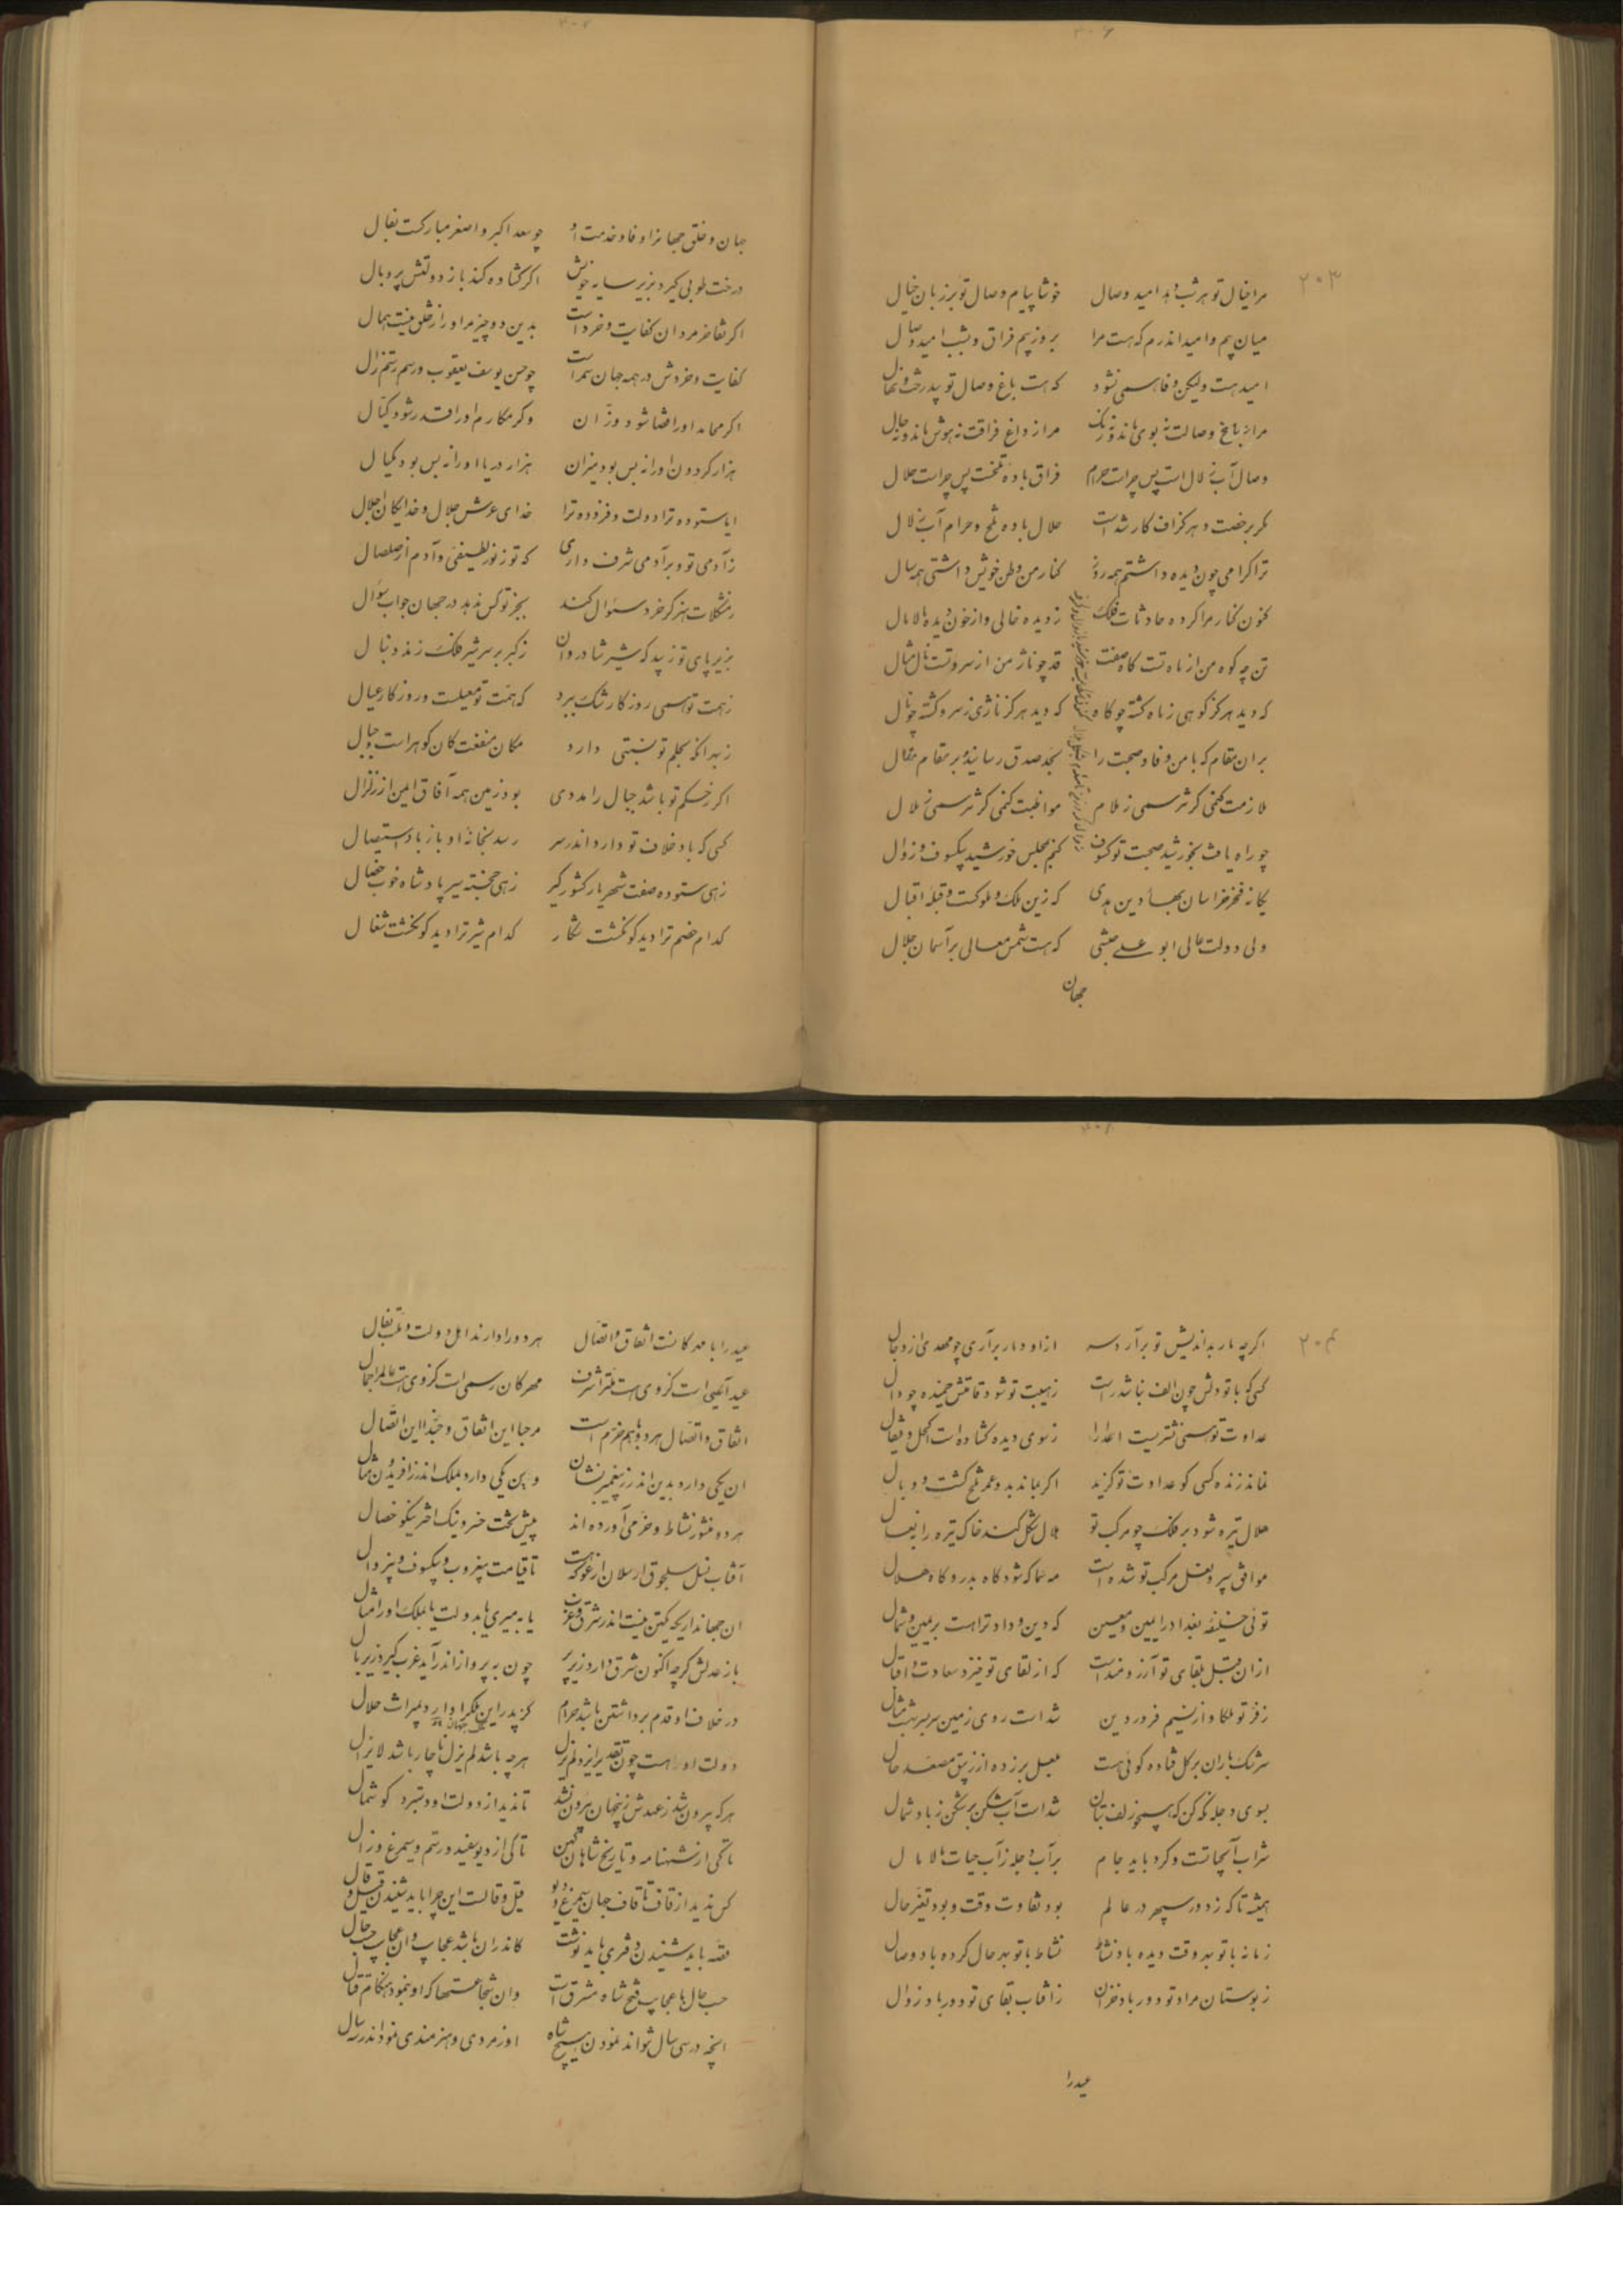 ۲۰۳
مرا خیال تو هر شب دهد امید وصال خوشا پیام وصال تو بر زبان خیال
میان بیم و امید اندرم که هست مرا بروز بیم فراق و بشب امید وصال
امید هست ولیکن وفا همی نشود که هست باغ وصال تو بی درخت و نهال
مرا ز باغ وصالت نه بوی ماند و نه رنگ مرا ز داغ فراقت نه هوش ماند و نه حال
وصال آب زلال است پس چراست حرام فراق باده تلخست پس چراست حلال
مگر برخصت و هر گزاف کار شده است حلال باده تلخ و حرام آب زلال
ترا گرامی چون دیده داشتم همه روز کنار من وطن خویش داشتی همه سال
کنون کنار مرا کرده حادثات فلک ز دیده خالی و از خون دیده مالامال
تن چو کوه من از ماه تست کاه صفت قد چو ناژ من از سرو تست نال مثال
که دید هرگز کوهی ز ماه گشته چو کاه که دید هرگز ناژی ز سرو گشته چو نال
بر آن مقام که با من وفا و صحبت را بجد صدق رسانید بر مقام مقال
ملازمت کنمی گر نترسمی ز ملام مواظبت کنمی گر نترسمی ز ملال
چو راه یافت بخورشید صحبت تو کسوف کنم مجلس خورشید بیکسوف و زوال
یگانه فخر خراسان بهاء دین هدی که زین ملک و ملوکست و قبله اقبال
ولی دولت عالی ابو علی حبشی که هست شمس معالی بر آسمان جلال
جهان
جهان و خلق جهانرا وفا و خدمت او چو سعد اکبر و اصغر مبارکست بفال
درخت طوبی گیرد بزیر سایه خویش اگر گشاده کند باز دولتش پر و بال
اگر تفاخر مردان کفایت و خرد است بدین دو چیز مر او را ز خلق نیست همال
کفایت و خردش در همه جهان سمر است چو حسن یوسف یعقوب و رسم رستم زال
اگر محامد او را قضا شود وزان وگر مکارم او را قدر شود کیال
هزار گردون او را نه بس بود میزان هزار دریا او را نه بس بود مکیال
ایا ستوده ترا دولت و فزوده ترا خدای عرش جلال و خدایگان اجلال
ز آدمی تو و بر آدمی شرف داری که تو ز نور لطیفی و آدم از صلصال
ز مشکلات هنر گر خرد سئوال کند بجز تو کس ندهد در جهان جواب سؤال
بزیر پای تو زیبد که شیر شادروان ز کبر بر سر شیر فلک زند دنبال
ز همت تو همی روزگار رشک برد که همت تو معیلست و روزگار عیال
ز بهر آنکه بحلم تو نسبتی دارد مکان منفعت کان گوهر است جبال
اگر ز حکم تو باشد جبال را مددی بود زمین همه آفاق ایمن از زلزال
کسی که باد خلاف تو دارد اندر سر رسد بخانه او باز باد استیصال
زهی ستوده صفت شهریار کشورگیر زهی خجسته سیر پادشاه خوب خصال
کدام خصم ترا دید کو نگشت شکار کدام شیر ترا دید کو نگشت شغال
۲۰۴
اگر چه مار بداندیش تو برآرد سر از او دمار برآری چو مهدی از دجال
کسی که با تو دلش چون الف نباشد راست ز هیبت تو شود قامتش خمیده چو دال
عداوت تو همی نشتریست اعدا را ز سوی دیده گشاده است اکحل و قیفال
نماند زنده کسی کو عداوت تو گزید اگر بماند بد و عمر تلخ گشت و وبال
هلال تیره شود بر فلک چو مرکب تو هلال شکل کند خاک تیره را ز نعال
موافق سپر و نعل مرکب تو شده است مه سما که شود گاه بدر و گاه هلال
توئی خلیفه بغداد را یمین و معین که دین و داد ترا هست بر یمین و شمال
از آن قبل بقای تو آرزومند است که از لقای تو خیزد سعادت و اقبال
ز فر تو ملکا و از نسیم فروردین شد است روی زمین سربسر بهشت مثال
سرشک باران بر گل فتاده گوئی هست بعسل برزده از زیبق مصعد خال
بسوی دجله نگه کن که همچو زلف بتان شد است آب شکن بر شکن ز باد شمال
شراب آنجاتست و کرد باید جام بر آب دجله ز آب حیات مالامال
همیشه تا که ز دور سپهر در عالم بود تفاوت وقت و بود تغیر حال
زمانه با تو بهر وقت دیده باد نشاط نشاط با تو بهر حال کرده باد وصال
ز بوستان مراد تو دور باد خزان ز آفتاب بقای تو دور باد زوال
عید را
عید را با مهرگانست اتفاق و اتصال هر دو را دارند اهل دولت و ملت بفال
عید آئینی است کز وی هست ملت را شرف مهرگان رسمی است کز وی هست عالم را جمال
اتفاق و اتصال هر دو با هم خرم است مرحبا این اتفاق و حبذا این اتصال
آن یکی دارد بدین اندر ز پیغمبر نشان وین یکی دارد بملک اندر ز افریدون مثال
هر دو منشور نشاط و خرمی آورده اند پیش تخت خسرو نیک اختر نیکو خصال
آفتاب نسل سلجوق ارسلان ارغو که هست تا قیامت بیغروب و بیکسوف و بیزوال
آن جهانداری که کس نیست اندر شرق و غرب یا به میری یا بدولت یا بملک او را همال
باز عدلش گرچه اکنون شرق دارد زیر پر چون به پرواز اندر آید غرب گیرد زیر بال
در خلاف او قدم برداشتن باشد حرام کز پدر این ملک را دارد بمیراث حلال
دولت او هست چون تقدیر ایزد لم یزل هر چه باشد لم یزل ناچار باشد لایزال
هر که بیرون شد ز عهدش زین جهان بیرون نشد تا ندید از دولت او دستبرد گوشمال
تا کی از شهنامه و تاریخ شاهان کهن تا کی از دیو سفید و رستم و سیمرغ و زال
کس ندید از قاف تا قاف جهان سیمرغ و دیو قیل و قالست این چرا باید شنیدن قیل و قال
قصه باید شنیدن دفتری باید نوشت کاندران باشد عجایب وان عجایب حسب حال
حسب حال با عجایب فتح شاه مشرق است وان شجاعتها که او بنمود هنگام قتال
آنچه در سی سال نتواند نمودن هیچ شاه او ز مردی و هنرمندی نمود اندر سه سال